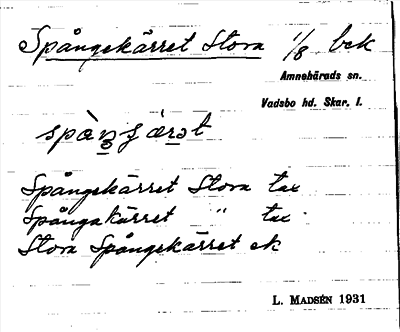 Spångekärret Stora 1/8 bek
Amnehärads sn.
Vadsbo hd. Skar. l.
Spångekärret Stora tax
Spångakärret " tax
Stora Spångekärret ek
L. MADSÉN 1931